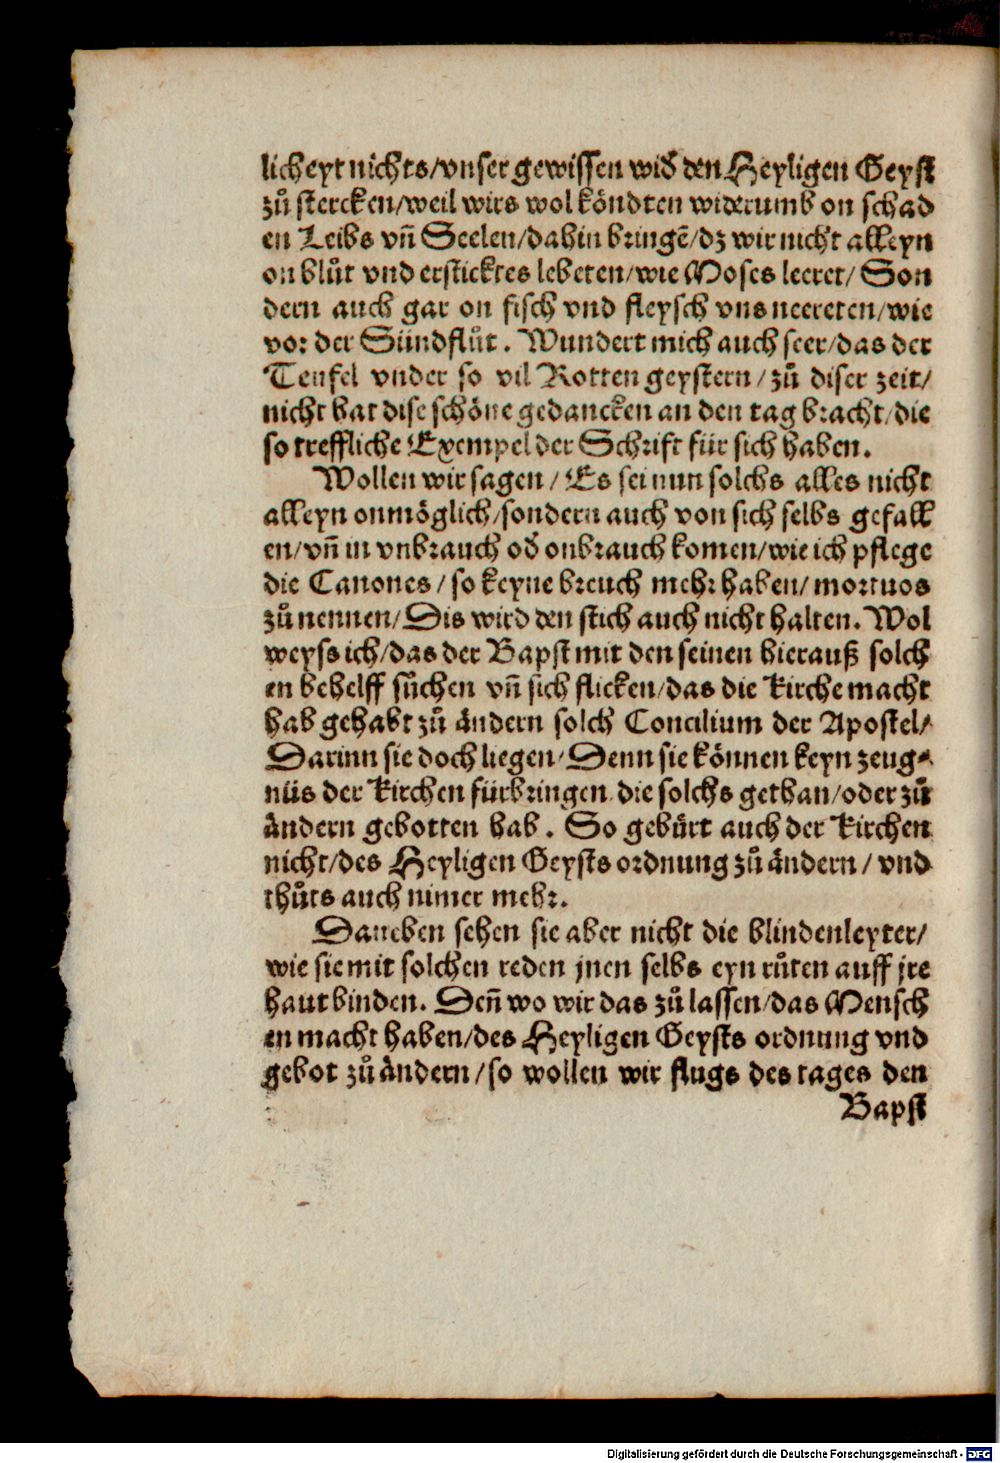 licheyt nichts/vnser gewissen wid̕ den Heyligen Geyst
zů stercken/weil wirs wol köndten widerumb on schad
en Leibs vñ Seelen/dahin bringē/dz wir nicht alleyn
on blůt vnd ersticktes lebeten/wie Moses leeret/ Son
dern auch gar on fisch vnd fleysch vns neereten/wie
vor der Sündflůt. Wundert mich auch seer/das der
Teufel vnder so vil Rotten geystern/zů diser zeit/
nicht hat dise schöne gedancken an den tag bracht/die
so treffliche Exempel der Schrift für sich haben.
Wollen wir sagen/ Es sei nun solchs alles nicht
alleyn onmöglich/sondern auch von sich selbs gefall
en/vñ in vnbrauch od̕ onbrauch komen/wie ich pflege
die Canones/so keyne breuch mehr haben/mortuos
zů nennen/Dis wird den stich auch nicht halten. Wol
weyss ich/das der Bapst mit den seinen hierauß solch
en behelff sůchen vñ sich flicken/das die Kirche macht
hab gehabt zů ändern solch Concilium der Apostel/
Darinn sie doch liegen/Denn sie können keyn zeug⸗
nüs der Kirchen fürbringen/die solchs gethan/oder zů
ändern gebotten hab. So gebürt auch der Kirchen
nicht/des Heyligen Geysts ordnung zů ändern/vnd
thůts auch nimer mehr.
Daneben sehen sie aber nicht die blindenleyter/
wie sie mit solchen reden jnen selbs eyn růten auff jre
haut binden. Deñ wo wir das zů lassen/das Mensch
en macht haben/des Heyligen Geysts ordnung vnd
gebot zů ändern/so wollen wir flugs des tages den
Bapst
Digitalisierung gefördert durch die Deutsche Forschungsgemeinschaft - DFG